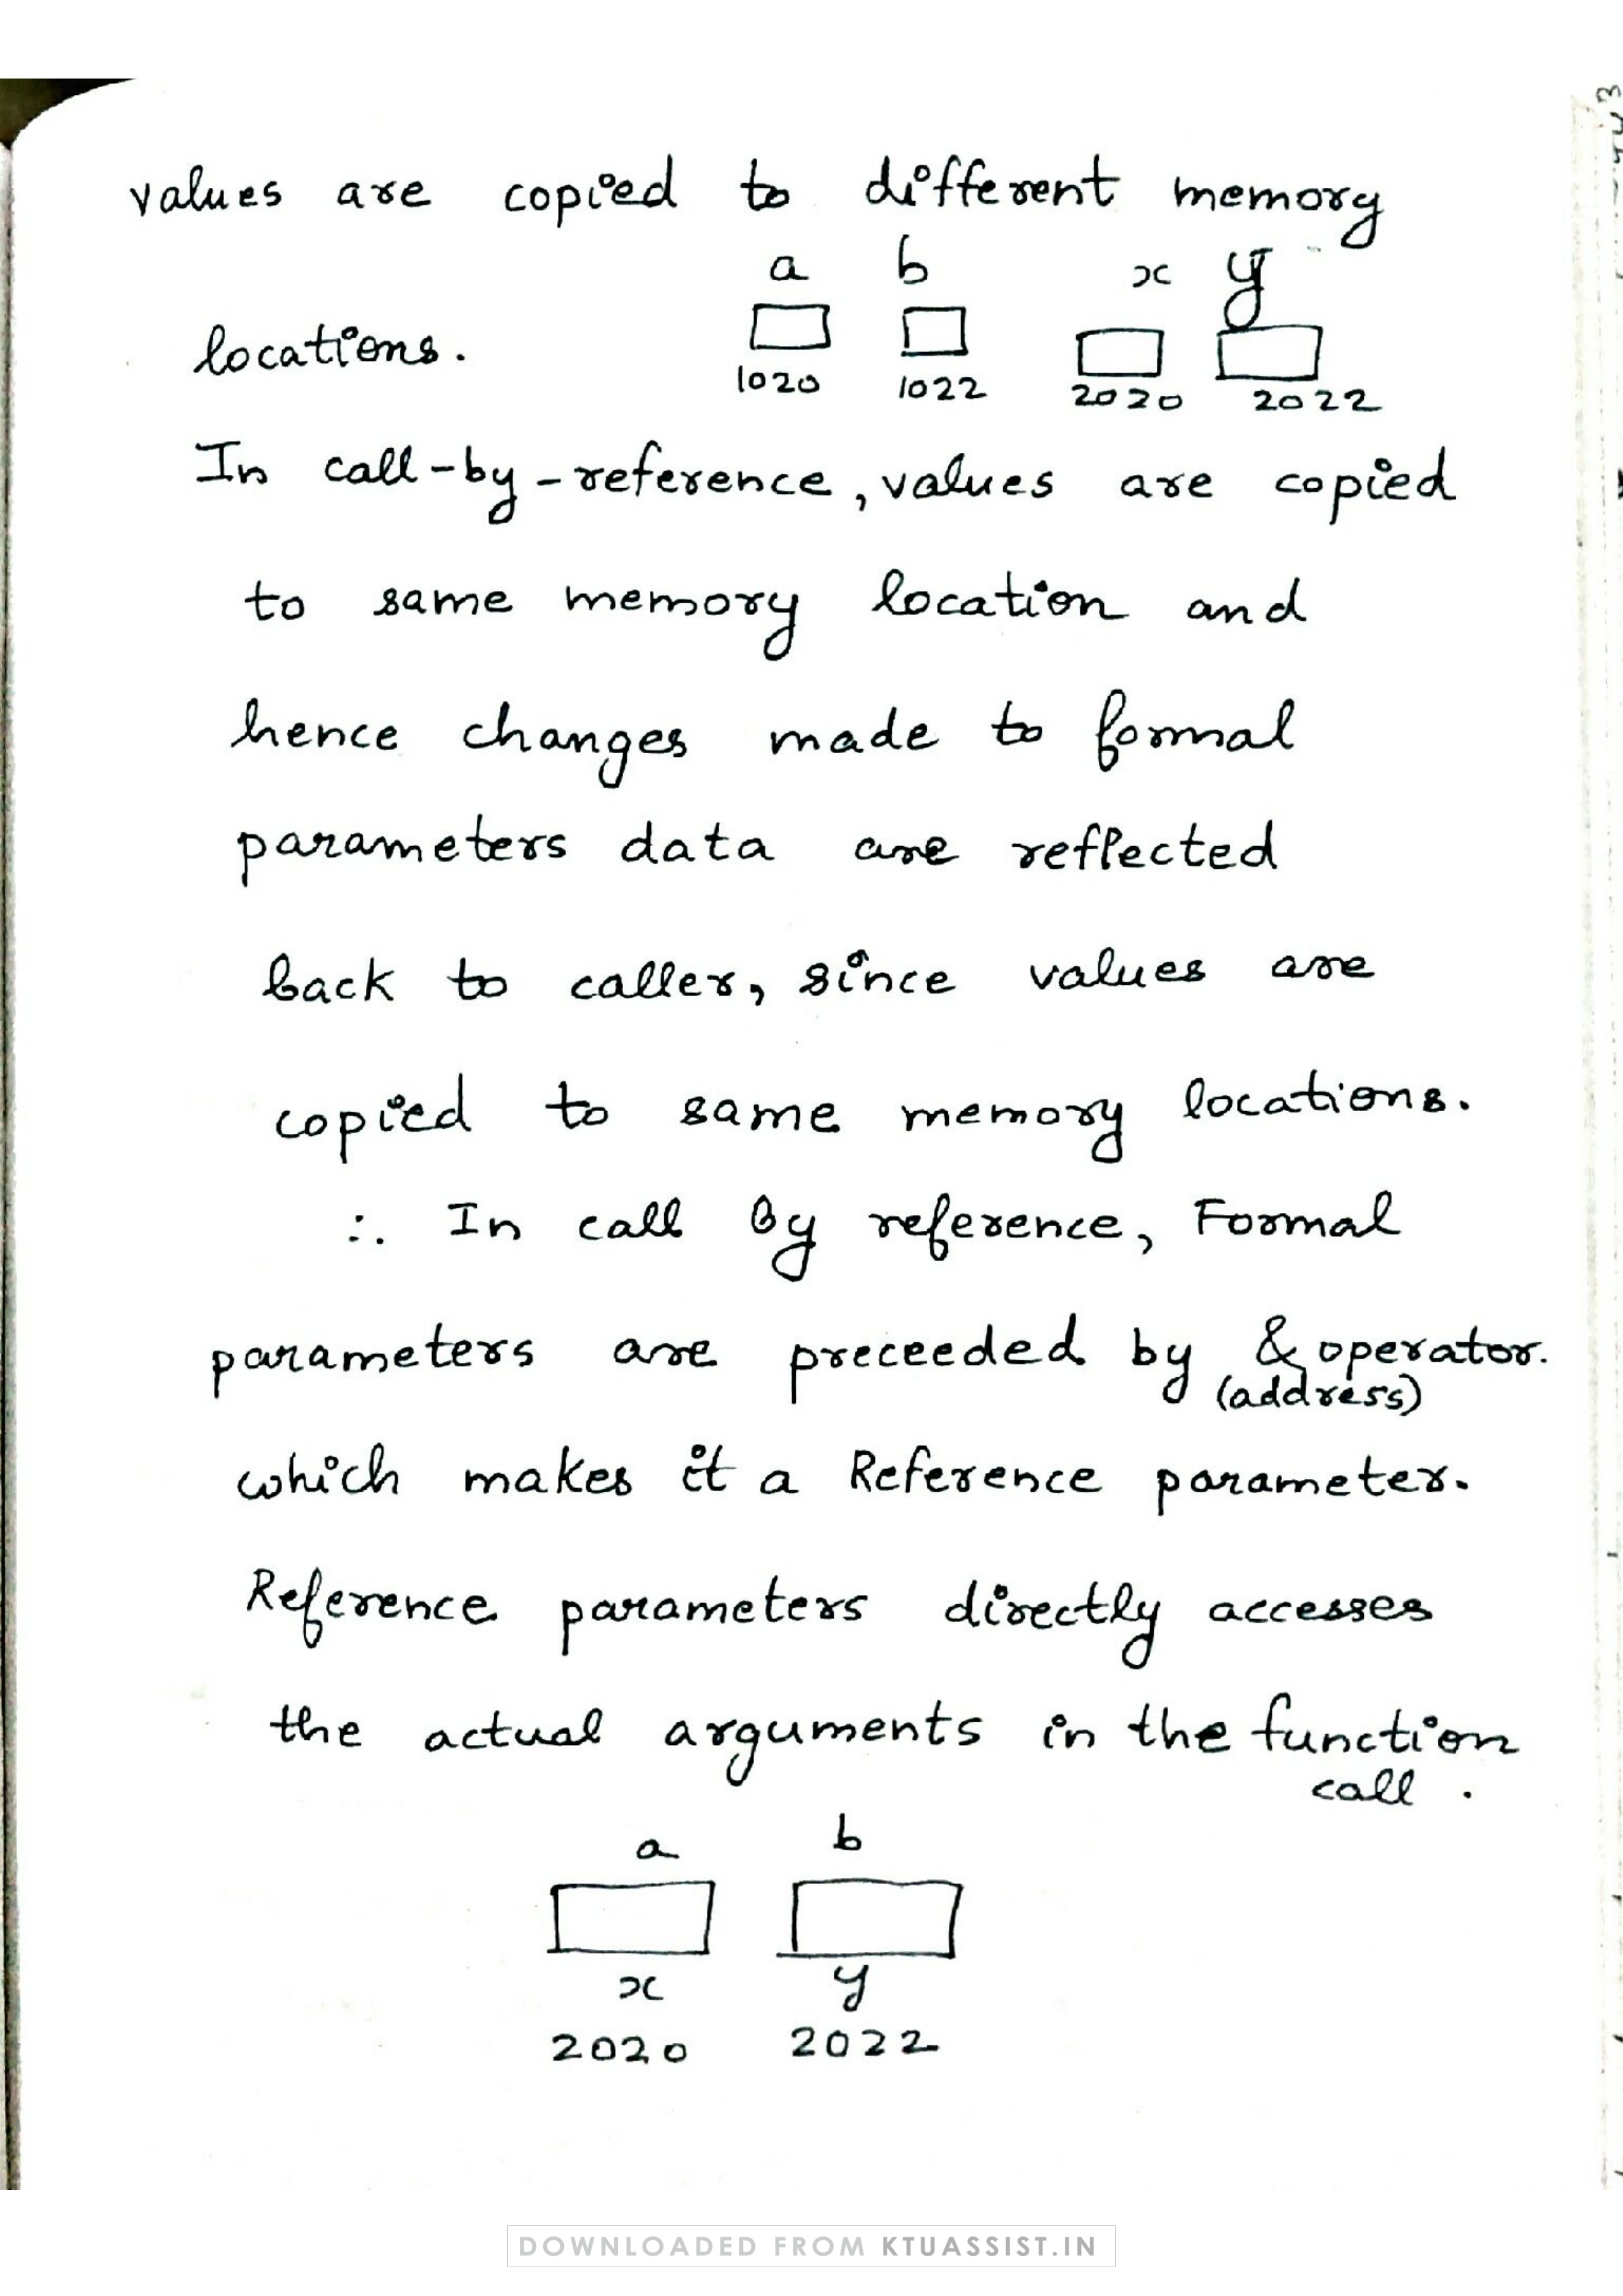 values are copied to different memory
a b x y
locations.
1020 1022 2020 2022
In call-by-reference, values are copied
to same memory location and
hence changes made to formal
parameters data are reflected
back to caller, since values are
copied to same memory locations.
∴ In call by reference, Formal
parameters are preceeded by & operator.
(address)
which makes it a Reference parameter.
Reference parameters directly accesses
the actual arguments in the function
call .
a b
x y
2020 2022
DOWNLOADED FROM KTUASSIST.IN